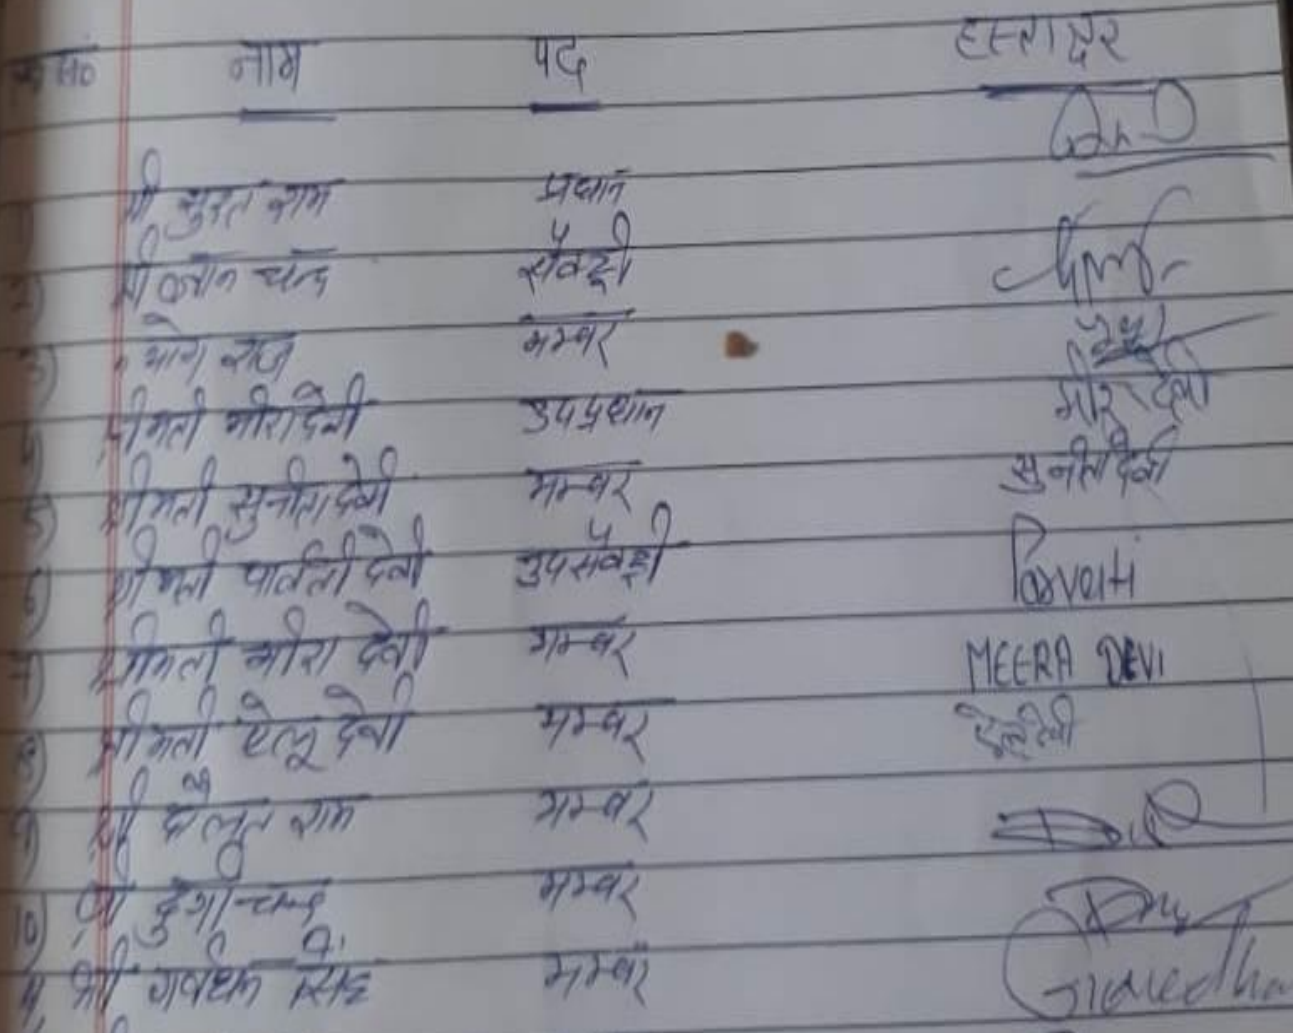 क्र सं० नाम पद हस्ताक्षर
1) श्री सुरत राम प्रधान
2) श्री ज्ञान चन्द सैक्ट्री
3) " योग राज मम्बर
4) श्रीमती मीरा देवी उपप्रधान मीरा देवी
5) श्रीमती सुनीता देवी मम्बर सुनीता देवी
6) श्रीमती पार्वती देवी उपसैक्ट्री Parvati
7) श्रीमती मीरा देवी मम्बर MEERA DEVI
8) श्रीमती देवी मम्बर
9) श्री राम मम्बर
10) श्री दुर्गा चन्द मम्बर
11, श्री गर्वधन सिंह मम्बर